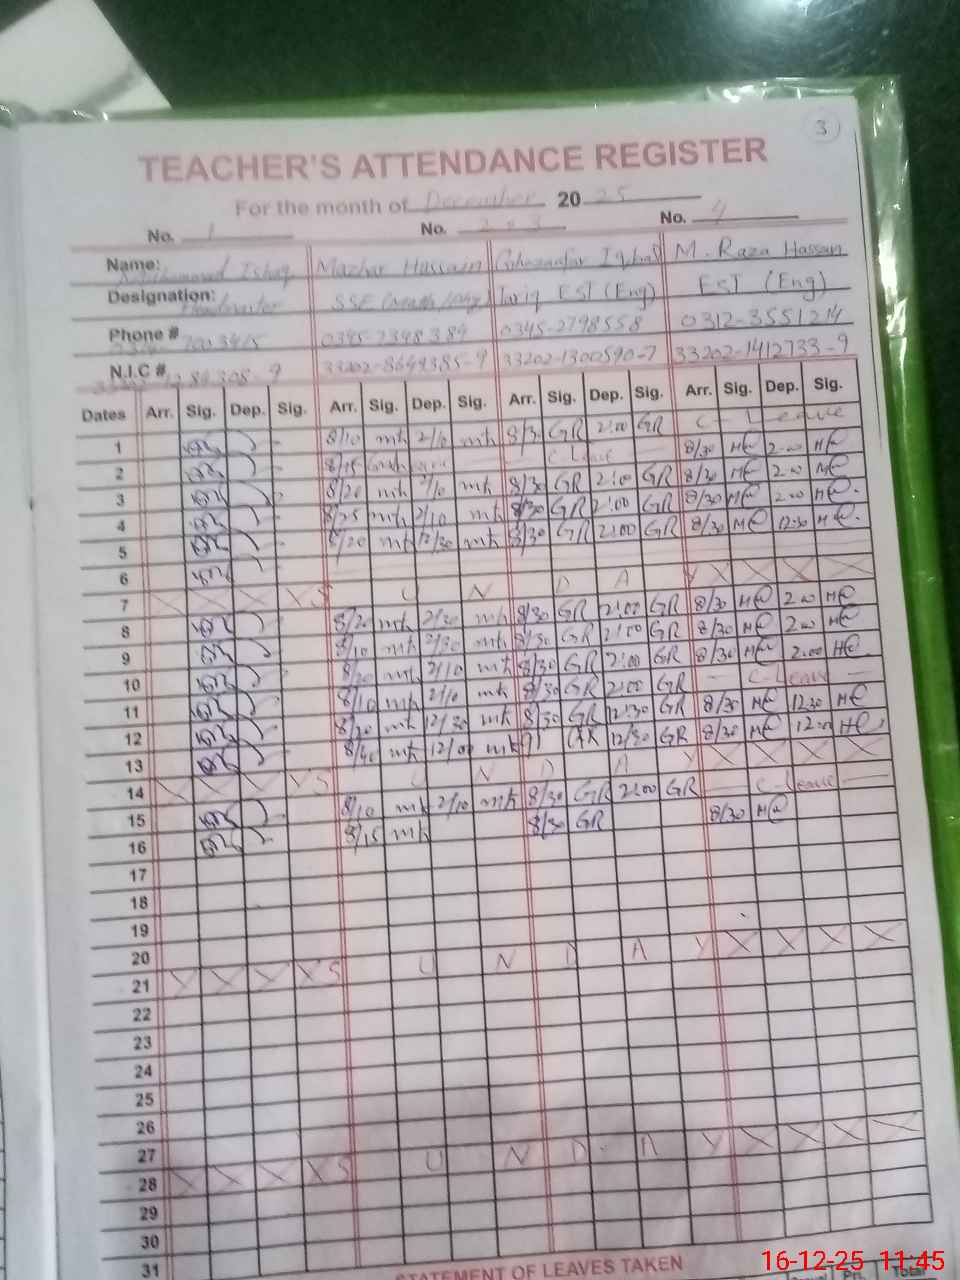 3
TEACHER'S ATTENDANCE REGISTER
For the month of December 20 25
No. 1 No. 2 3 No. 4
Name: Muhammad Ishaq Mazhar Hussain Ghazanfar Iqbal M. Raza Hassan
Designation: Headmaster SSE Tariq EST (Eng) EST (Eng)
Phone # 0345-2398389 0345-2798558 0312-3551214
N.I.C #. 33202-8649385-9 33202-1300590-7 33202-1412733-9
Dates Arr. Sig. Dep. Sig. Arr. Sig. Dep. Sig. Arr. Sig. Dep. Sig. Arr. Sig. Dep. Sig.
1 8/10 mh 2/10 mh 8/30 GR 2:00 GR C-Leave
2 8/15 C Leave 8/30 2:00
3 8/20 mh 2/10 mh 8/30 GR 2:00 GR 8/30 2:00
4 8/25 mh 2/10 mh 8/30 GR 2:00 GR 8/30 2:00
5 8/20 mh 12/30 mh 8/30 GR 2:00 GR 8/30 12:30
6
7 X X X X S U N D A Y X X X X
8 8/20 mh 2/30 mh 8/30 GR 2:00 GR 8/30 2:00
9 8/10 mh 2/30 mh 8/30 GR 2:00 GR 8/30 2:00
10 8/20 mh 2/10 mh 8/30 GR 2:00 GR 8/30 2:00
11 8/10 mh 2/10 mh 8/30 GR 2:00 GR C-Leave
12 8/20 mh 12/30 mh 8/30 GR 12:30 GR 8/30 12:30
13 8/40 mh 12/00 mh GR 12/30 GR 8/30
14 X X X X S U N D A Y X X X X
15 8/10 mh 2/10 mh 8/30 GR 2:00 GR C-Leave
16 8/15 mh 8/30 GR 8/30
17
18
19
20
21 X X X X S U N D A Y X X X X
22
23
24
25
26
27
28 X X X X S U N D A Y X X X X
29
30
31
STATEMENT OF LEAVES TAKEN
Total
16-12-25 11:45